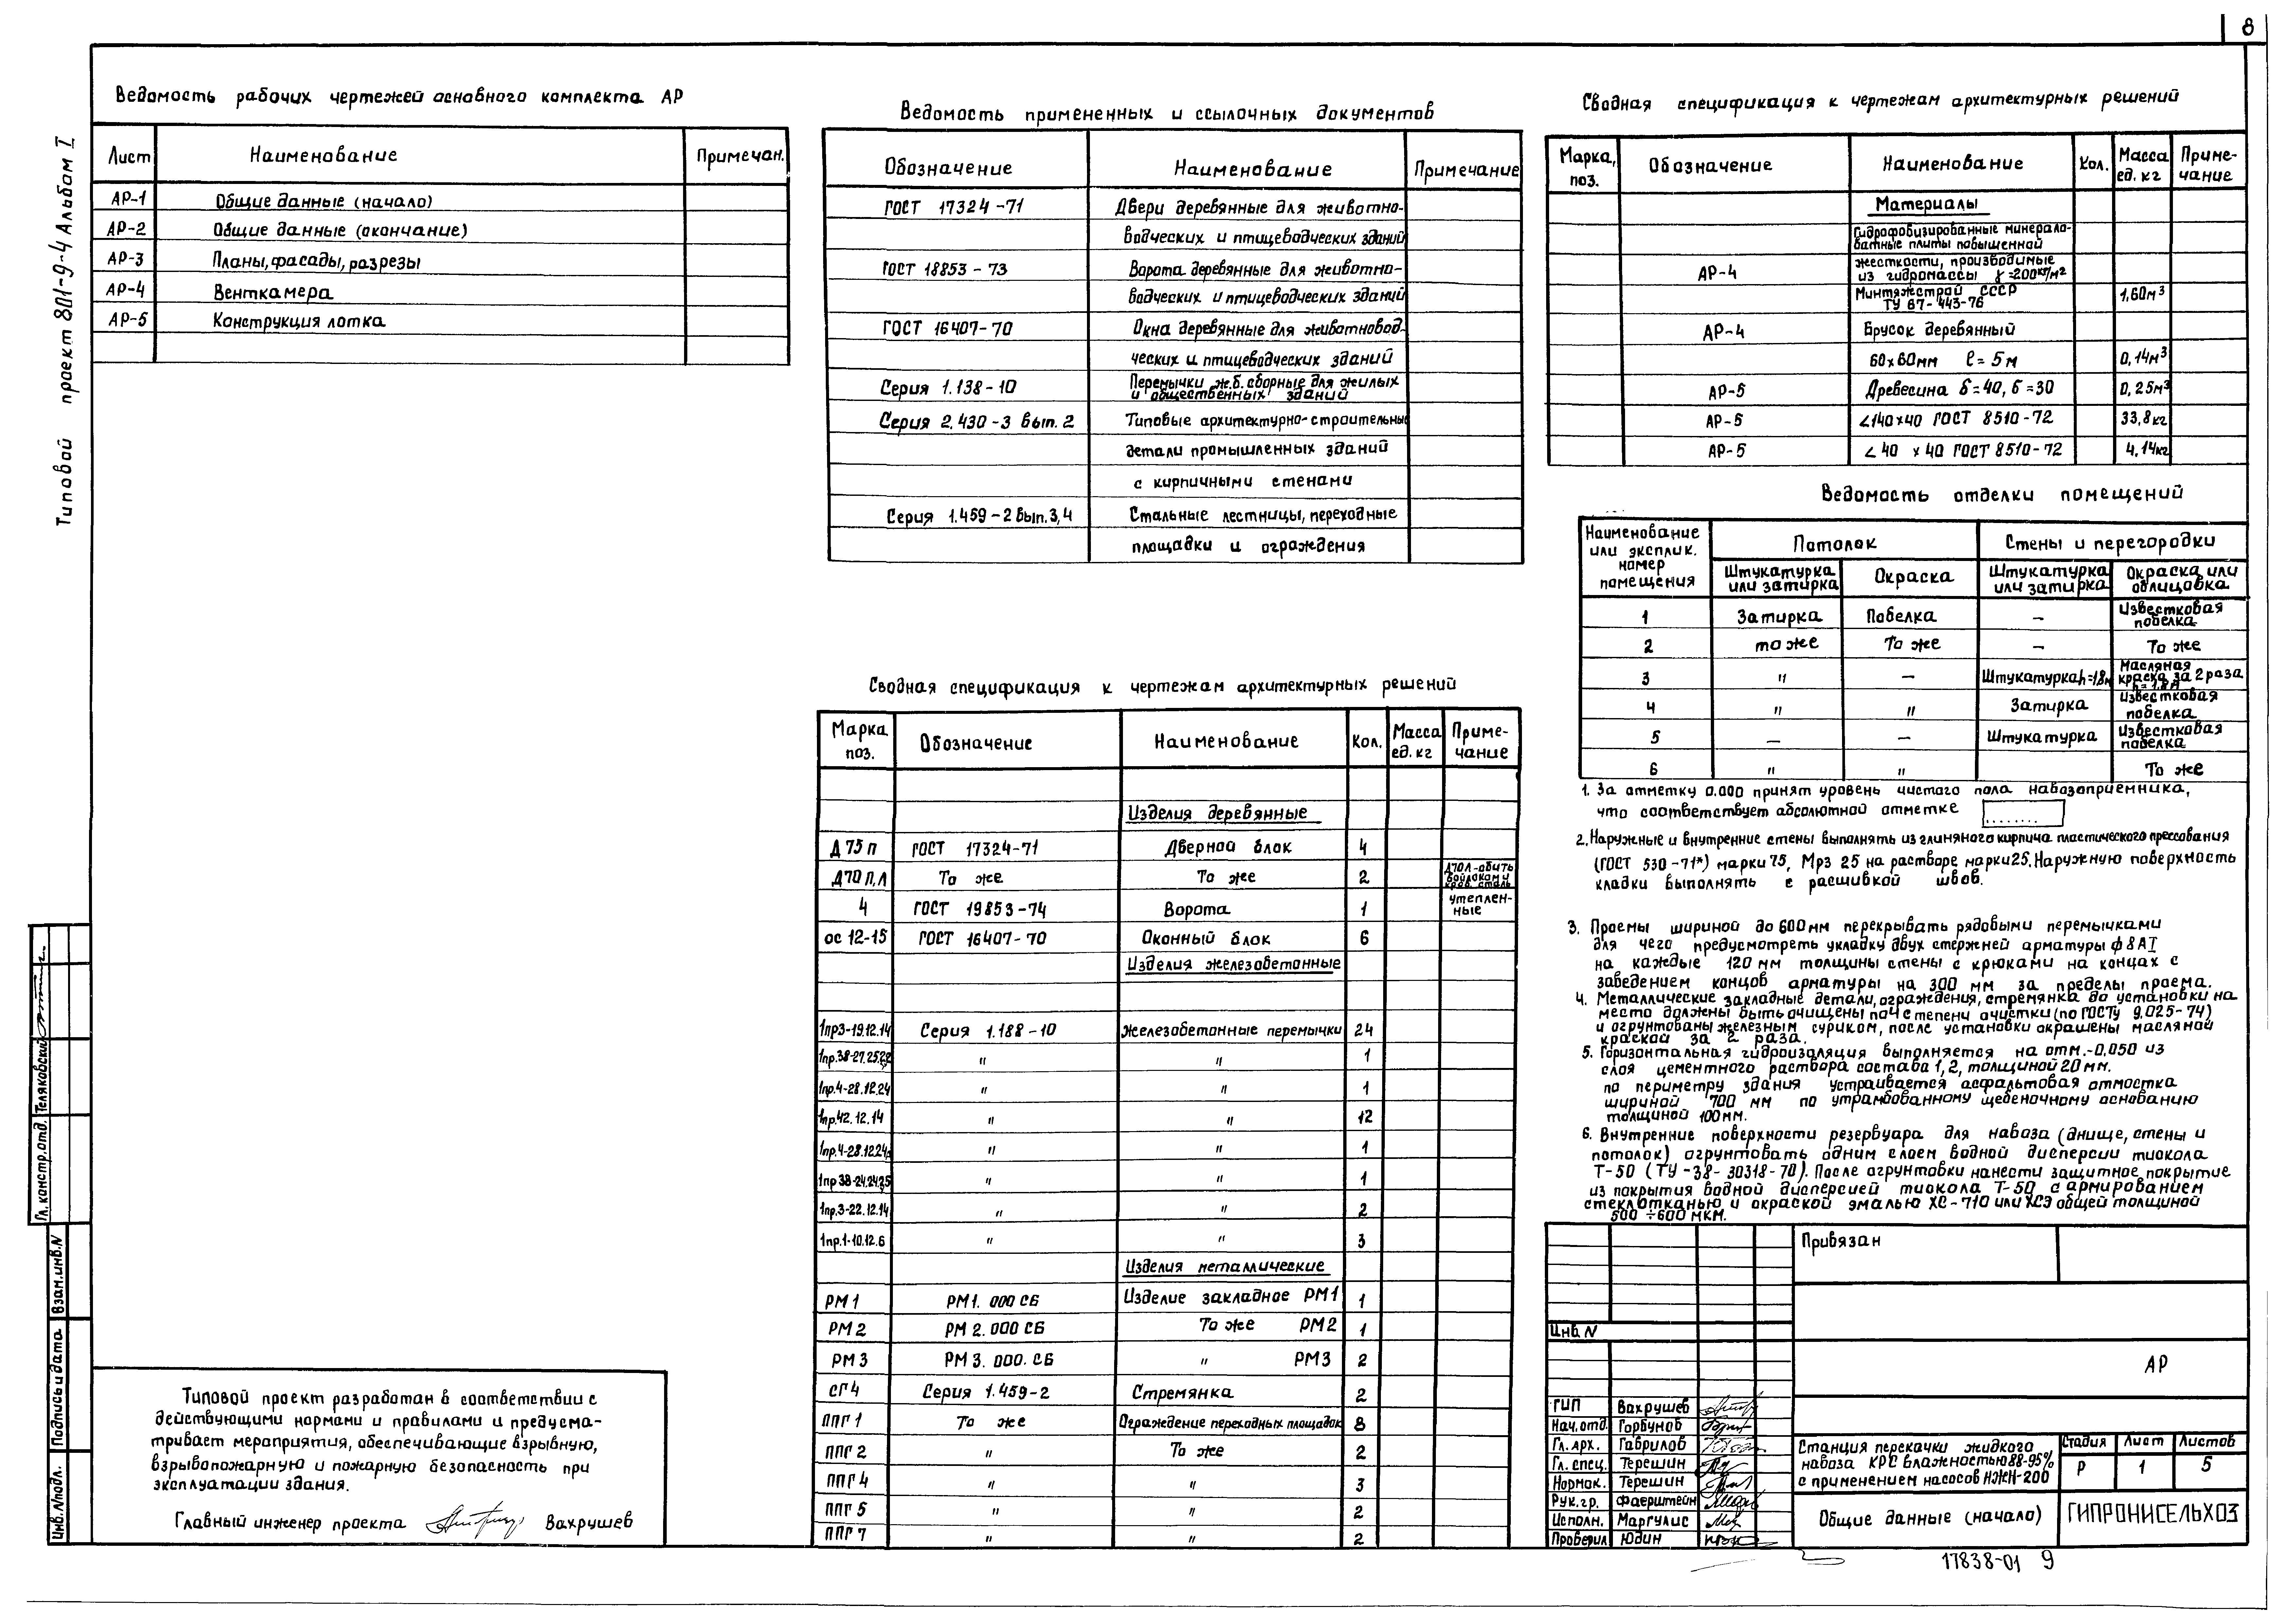 8
Типовой проект 801-9-4 Альбом I
Ведомость рабочих чертежей основного комплекта АР
Лист Наименование Примечан.
АР-1 Общие данные (начало)
АР-2 Общие данные (окончание)
АР-3 Планы, фасады, разрезы
АР-4 Венткамера
АР-5 Конструкция лотка
Ведомость примененных и ссылочных документов
Обозначение Наименование Примечание
ГОСТ 17324-71 Двери деревянные для животно-
водческих и птицеводческих зданий
ГОСТ 18853-73 Ворота деревянные для животно-
водческих и птицеводческих зданий
ГОСТ 16407-70 Окна деревянные для животновод-
ческих и птицеводческих зданий
Серия 1.138-10 Перемычки ж.б. сборные для жилых
и общественных зданий
Серия 2.430-3 вып. 2 Типовые архитектурно-строительные
детали промышленных зданий
с кирпичными стенами
Серия 1.459-2 вып. 3,4 Стальные лестницы, переходные
площадки и ограждения
Сводная спецификация к чертежам архитектурных решений
Марка поз. Обозначение Наименование Кол. Масса ед. кг Приме-чание
Изделия деревянные
Д 75 п ГОСТ 17324-71 Дверной блок 4
Д70 П,Л То же То же 2 Д70Л-обить войлоком и кров. сталь
4 ГОСТ 19853-74 Ворота 1 утеплен-ные
ос 12-15 ГОСТ 16407-70 Оконный блок 6
Изделия железобетонные
1пр3-19.12.14 Серия 1.188-10 Железобетонные перемычки 24
1пр.38-27.25.22 " " 1
1пр.4-28.12.24 " " 1
1пр.42.12.14 " " 12
1пр.4-28.12.24а " " 1
1пр 38-24.24.25 " " 1
1пр.3-22.12.14 " " 2
1пр.1-10.12.6 " " 3
Изделия металлические
РМ 1 РМ1. 000 СБ Изделие закладное РМ1 1
РМ 2 РМ 2. 000 СБ То же РМ2 1
РМ 3 РМ 3. 000. СБ " РМ3 2
СГ 4 Серия 1.459-2 Стремянка 2
ППГ 1 То же Ограждение переходных площадок 8
ППГ 2 " То же 2
ППГ 4 " " 3
ППГ 5 " " 2
ППГ 7 " " 2
Сводная спецификация к чертежам архитектурных решений
Марка, поз. Обозначение Наименование Кол. Масса ед. кг Приме-чание
Материалы
Гидрофобизированные минерало-
ватные плиты повышенной
жесткости, производимые
АР-4 из гидромассы γ=200кг/м²
Минтяжстрой СССР
ТУ 67-443-76 1,60м³
АР-4 Брусок деревянный
60х60мм ℓ = 5м 0,14м³
АР-5 Древесина δ=40, δ=30 0,25м³
АР-5 ∠140×40 ГОСТ 8510-72 33,8кг
АР-5 ∠ 40 × 40 ГОСТ 8510-72 4,14кг
Ведомость отделки помещений
Наименование или эксплик. номер помещения Потолок Стены и перегородки
Штукатурка или затирка Окраска Штукатурка или затирка Окраска или облицовка
1 Затирка Побелка — Известковая побелка
2 то же То же — То же
3 " — Штукатурка h=1,8м Масляная краска за 2 раза h=1,8м
4 " " Затирка Известковая побелка
5 — — Штукатурка Известковая побелка
6 " " То же
1. За отметку 0.000 принят уровень чистого пола навозоприемника,
что соответствует абсолютной отметке
2. Наружные и внутренние стены выполнять из глиняного кирпича пластического прессования
(ГОСТ 530-71*) марки 75, Мрз 25 на растворе марки 25. Наружную поверхность
кладки выполнять с расшивкой швов.
3. Проемы шириной до 600мм перекрывать рядовыми перемычками
для чего предусмотреть укладку двух стержней арматуры ф 8АI
на каждые 120 мм толщины стены с крюками на концах с
заведением концов арматуры на 300 мм за пределы проема.
4. Металлические закладные детали, ограждения, стремянка до установки на
место должны быть очищены по 4 степени очистки (по ГОСТу 9.025-74)
и огрунтованы железным суриком, после установки окрашены масляной
краской за 2 раза.
5. Горизонтальная гидроизоляция выполняется на отм.-0,050 из
слоя цементного раствора состава 1,2, толщиной 20 мм.
по периметру здания устраивается асфальтовая отмостка
шириной 700 мм по утрамбованному щебеночному основанию
толщиной 100мм.
6. Внутренние поверхности резервуара для навоза (днище, стены и
потолок) огрунтовать одним слоем водной дисперсии тиокола
Т-50 (ТУ-38-30318-70). После огрунтовки нанести защитное покрытие
из покрытия водной дисперсией тиокола Т-50 с армированием
стеклотканью и окраской эмалью ХС-710 или ХСЭ общей толщиной
500÷600 мкм.
Типовой проект разработан в соответствии с
действующими нормами и правилами и предусма-
тривает мероприятия, обеспечивающие взрывную,
взрывопожарную и пожарную безопасность при
эксплуатации здания.
Главный инженер проекта Вахрушев
Гл. констр. отд. Теляковский
Взам. инв. N
Подпись и дата
Инв. N подл.
Привязан
Инв. N
АР
ГИП Вахрушев
Нач. отд. Горбунов
Гл. арх. Гаврилов
Гл. спец. Терешин
Нормок. Терешин
Рук. гр. Фаерштейн
Исполн. Маргулис
Проверил Юдин
Станция перекачки жидкого
навоза КРС влажностью 88-95%
с применением насосов НЖН-200
Стадия Лист Листов
Р 1 5
Общие данные (начало)
ГИПРОНИСЕЛЬХОЗ
17838-01 9